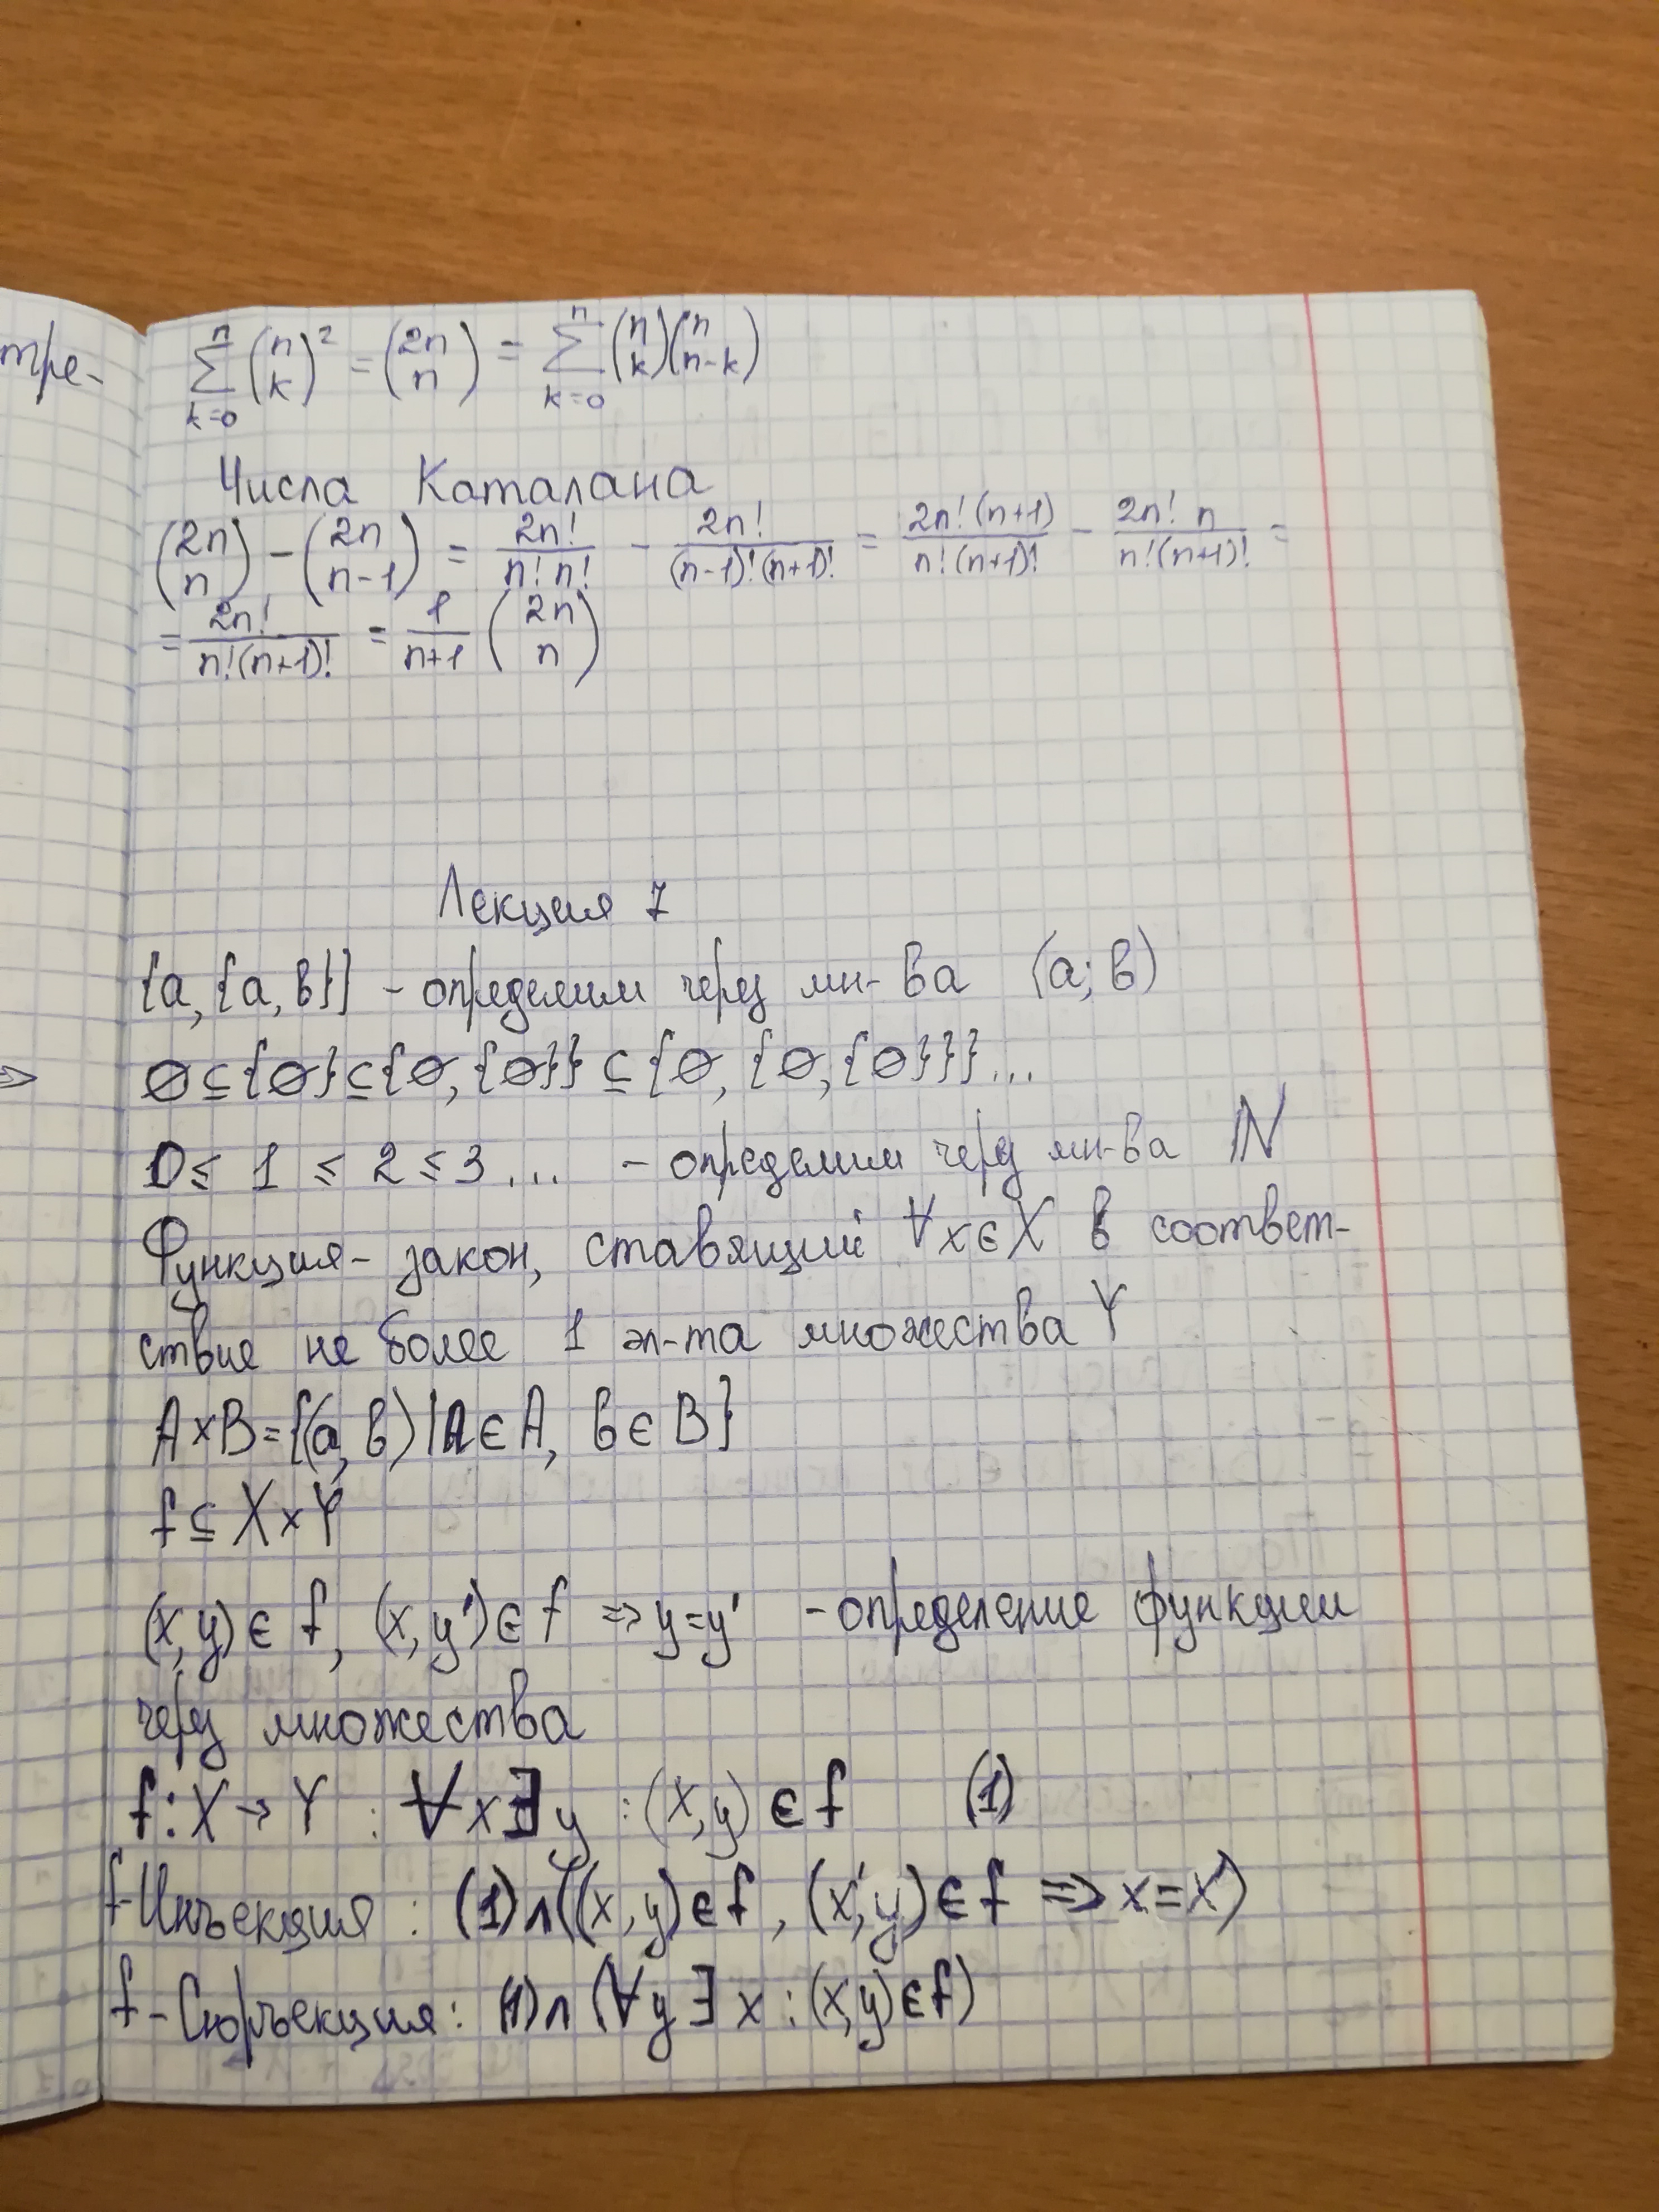 тре-
$\sum_{k=0}^{n} \binom{n}{k}^2 = \binom{2n}{n} = \sum_{k=0}^{n} \binom{n}{k}\binom{n}{n-k}$
Числа Каталана
$\binom{2n}{n} - \binom{2n}{n-1} = \frac{2n!}{n!\,n!} - \frac{2n!}{(n-1)!(n+1)!} = \frac{2n!(n+1)}{n!(n+1)!} - \frac{2n!\,n}{n!(n+1)!} =$
$= \frac{2n!}{n!(n+1)!} = \frac{1}{n+1}\binom{2n}{n}$
Лекция 7
{a, {a, b}} - определим через мн-ва (a; b)
⇒
∅ ⊆ {∅} ⊆ {∅, {∅}} ⊆ {∅, {∅, {∅}}}...
0 ≤ 1 ≤ 2 ≤ 3 ... - определим через мн-ва N
Функция - закон, ставящий ∀x∈X в соответ-
ствие не более 1 эл-та множества Y
A×B = {(a, b) | a∈A, b∈B}
f ⊆ X×Y
(x, y) ∈ f, (x, y') ∈ f ⇒ y = y' - определение функции
через множества
f: X → Y : ∀x∃y : (x, y) ∈ f (1)
f-Инъекция : (1)∧((x, y) ∈ f, (x', y) ∈ f ⇒ x = x')
f-Сюръекция: (1)∧(∀y ∃x : (x, y) ∈ f)